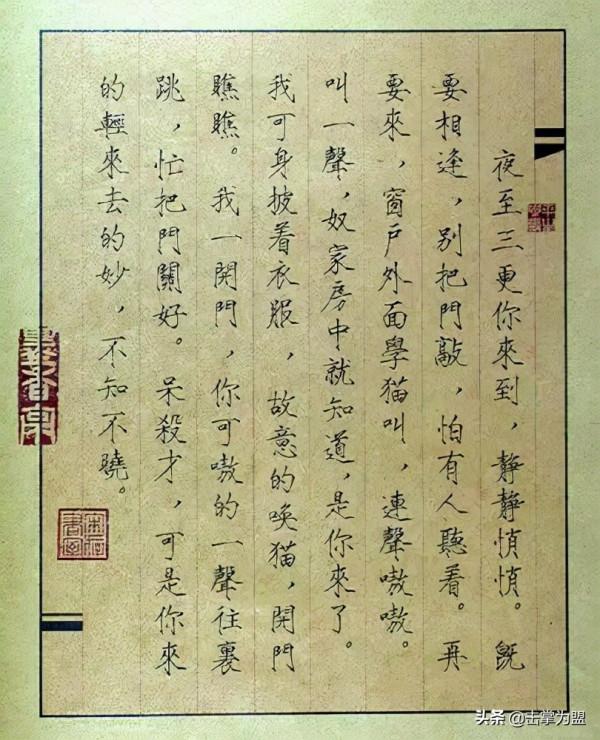 夜至三更你來到，靜靜悄悄。既
要相逢，別把門敲，怕有人聽着。再
要來，窗戶外面學猫叫，連聲嗷嗷。
叫一聲，奴家房中就知道，是你來了。
我可身披着衣服，故意的喚猫，開門
瞧瞧。我一開門，你可嗷的一聲往裏
跳，忙把門關好。呆殺才，可是你來
的輕來去的妙，不知不曉。
头条 @击掌为盟